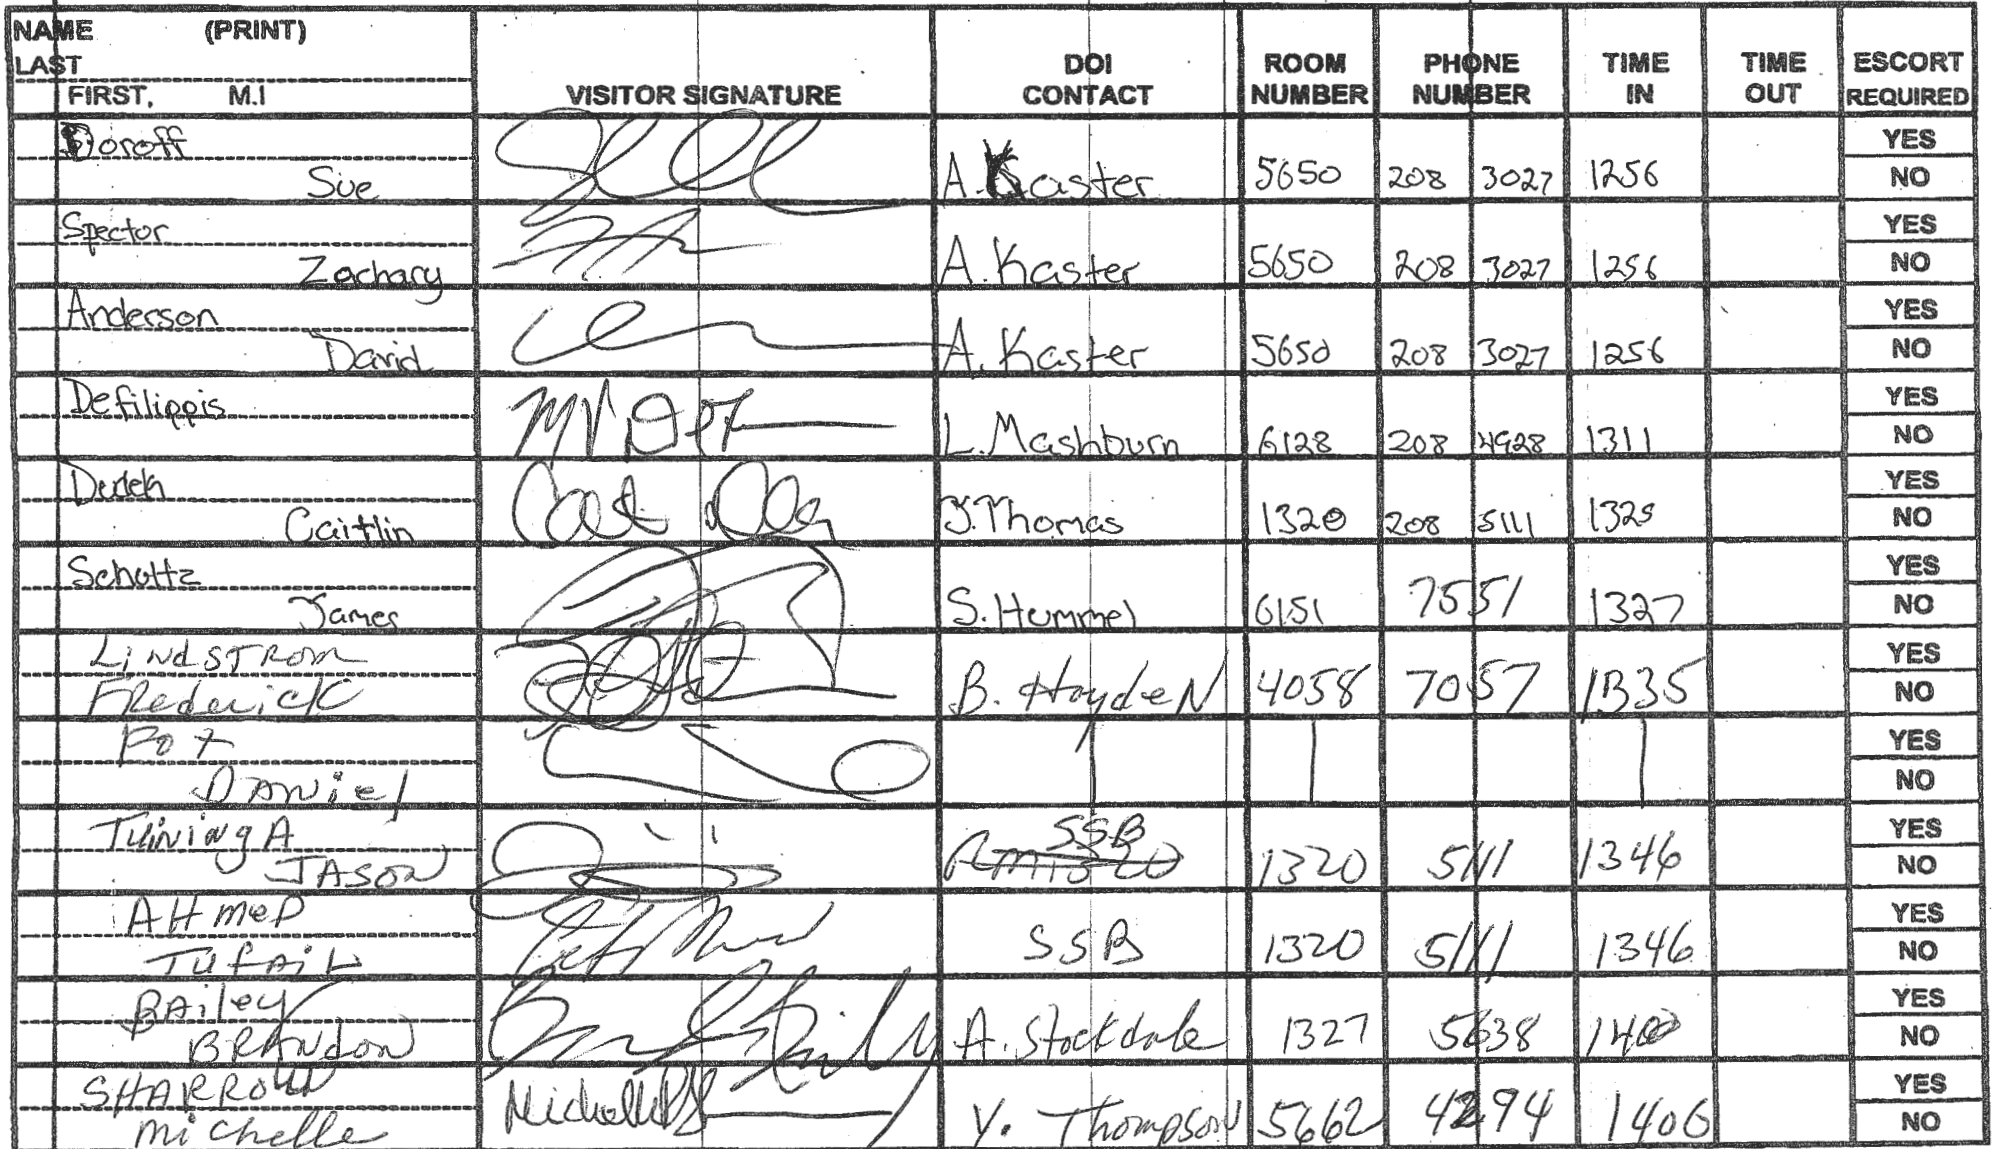 NAME (PRINT)
LAST
FIRST, M.I
VISITOR SIGNATURE
DOI CONTACT
ROOM NUMBER
PHONE NUMBER
TIME IN
TIME OUT
ESCORT REQUIRED
Doroff
Sue A. Kaster 5650 208 3027 1256 YES NO
Spector
Zachary A. Kaster 5650 208 3027 1256 YES NO
Anderson
David A. Kaster 5650 208 3027 1256 YES NO
Defilippis
L. Mashburn 6128 208 4928 1311 YES NO
Dudek
Caitlin J. Thomas 1320 208 5111 1325 YES NO
Scholtz
James S. Hummel 6151 7551 1327 YES NO
LINDSTROM
Frederick B. Hayden 4058 7057 1335 YES NO
DANiel YES NO
TUiNiNgA
JASON SSB 1320 5111 1346 YES NO
AHmeD
TUfAiL SSB 1320 5111 1346 YES NO
BAiley
BRANdoN A. Stockdale 1327 5638 1400 YES NO
SHARROW
Michelle Y. Thompson 5662 4294 1406 YES NO